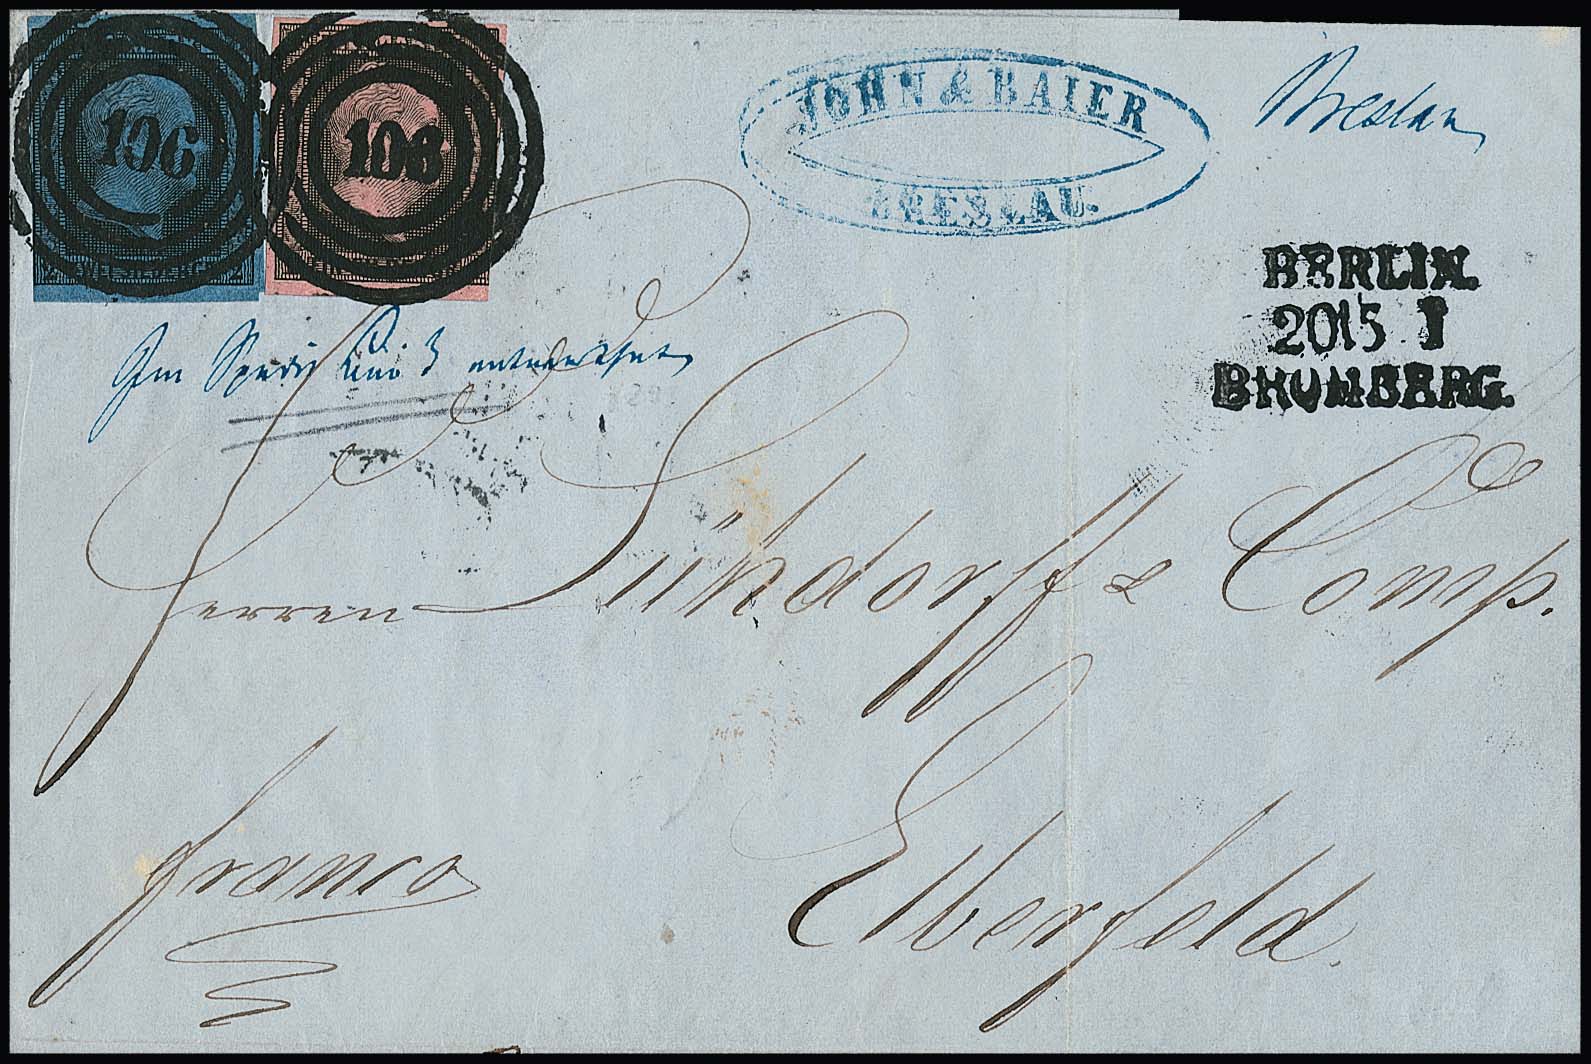 106
108
ZWEI SILBERGR.
JOHN & BAIER
BRESLAU.
Breslau
BERLIN.
20 5 I
BROMBERG.
Herren Lühdorff & Comp.
franco
Elberfeld.